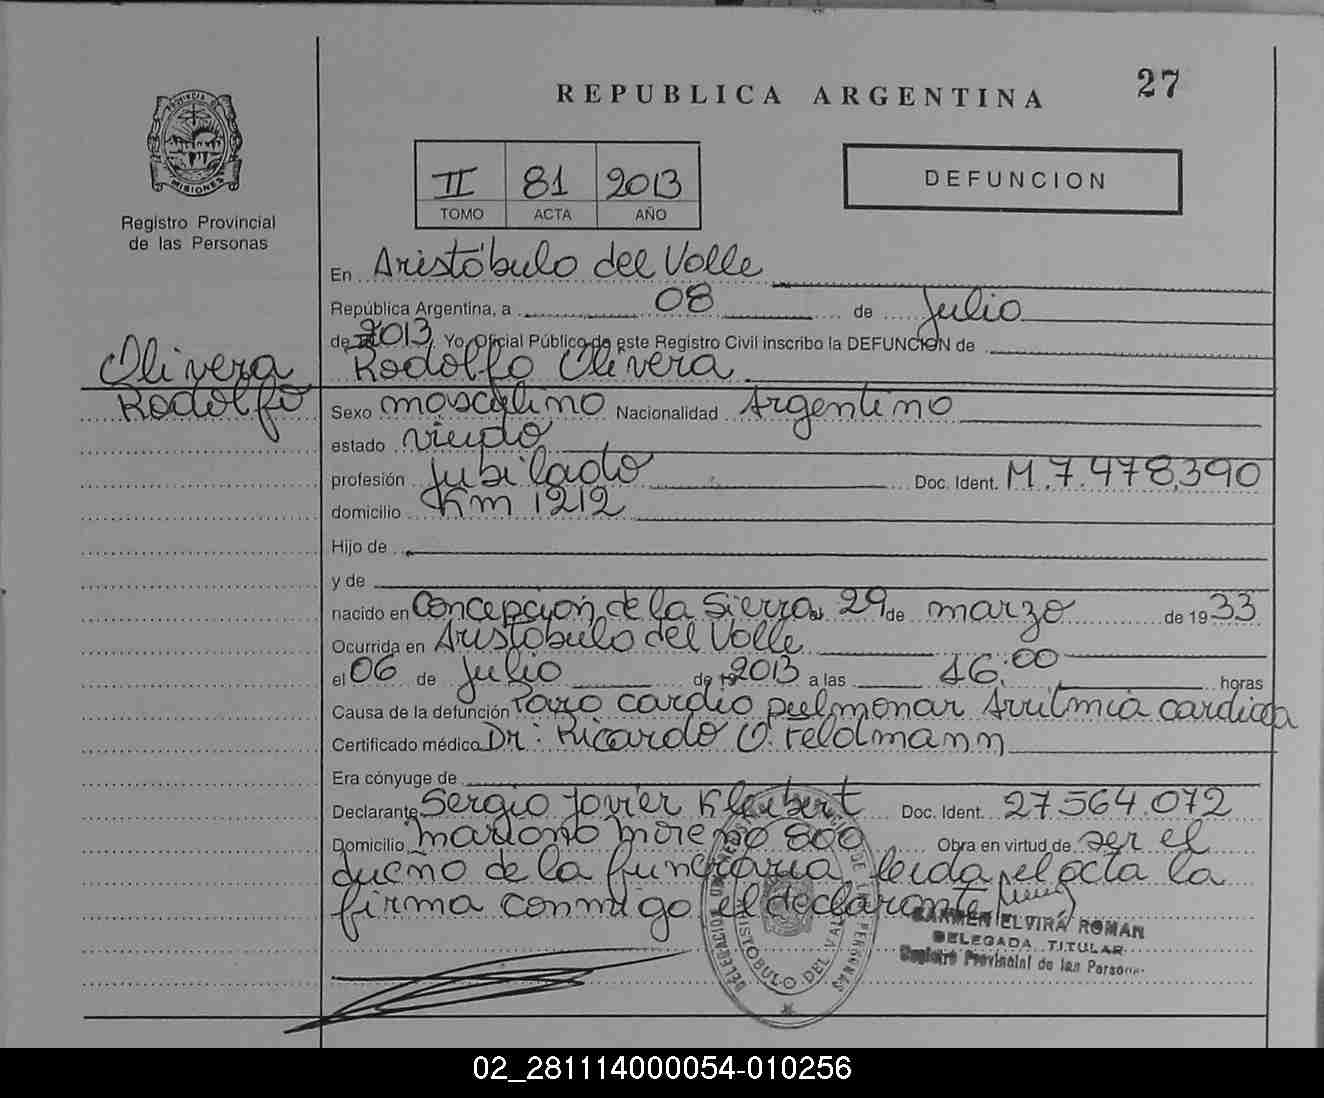 27
REPUBLICA ARGENTINA
PROVINCIA DE
MISIONES
Registro Provincial
de las Personas
II 81 2013
TOMO ACTA AÑO
DEFUNCION
En Aristóbulo del Valle
República Argentina, a 08 de Julio
de 2013. Yo Oficial Público de este Registro Civil inscribo la DEFUNCION de
Olivera
Rodolfo
Rodolfo Olivera
Sexo masculino Nacionalidad Argentino
estado viudo
profesión Jubilado Doc. Ident. M.7.478.390
domicilio Km 1212
Hijo de
y de
nacido en Concepción de la Sierra 29 de marzo de 1933
Ocurrida en Aristóbulo del Valle
el 06 de Julio de 2013 a las 16:00 horas
Causa de la defunción Paro cardio pulmonar Arritmia cardiaca
Certificado médico Dr: Ricardo O. Feldmann
Era cónyuge de
Declarante Sergio Javier Kleibert Doc. Ident. 27.564.072
Domicilio Mariano Moreno 800 Obra en virtud de ser el
dueño de la funeraria leida el acta la
firma conmigo el declarante
CARMEN ELVIRA ROMAN
DELEGADA TITULAR
Registro Provincial de las Personas
DELEGACION DE LAS PERSONAS
ARISTOBULO DEL VALLE
02_281114000054-010256